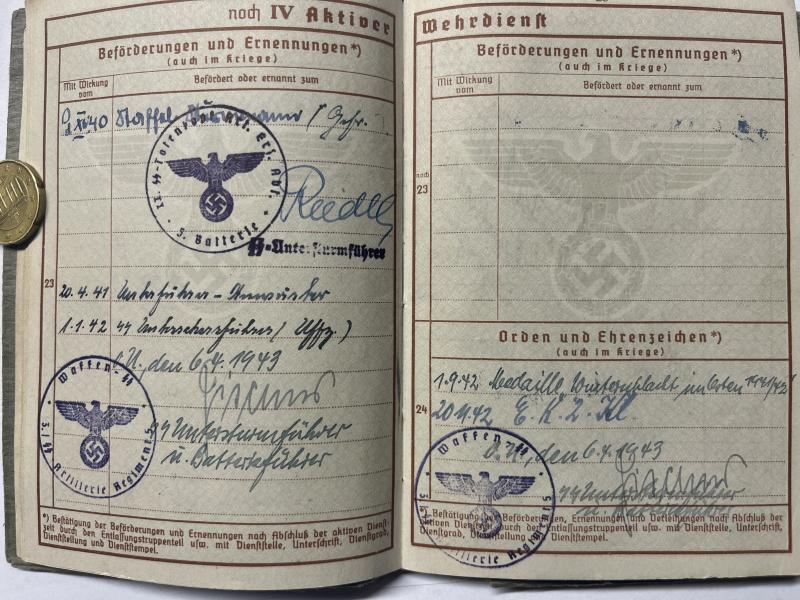 noch IV Aktiver
Beförderungen und Ernennungen*)
(auch im Kriege)
Mit Wirkung vom
Befördert oder ernannt zum
Staffel-
Reedl
SS-Untersturmführer
5. Batterie
23
20.4.41 Unterführer-Anwärter
1.1.42 SS Unterscharführer (Uffz.)
O.U., den 6.4.1943
SS Untersturmführer
u. Batterieführer
Waffen-SS
Artillerie Regiment 5
*) Bestätigung der Beförderungen und Ernennungen nach Abschluß der aktiven Dienst-
zeit durch den Entlassungstruppenteil usw. mit Dienststelle, Unterschrift, Dienstgrad,
Dienststellung und Dienststempel.
Wehrdienst
Beförderungen und Ernennungen*)
(auch im Kriege)
Mit Wirkung vom
Befördert oder ernannt zum
noch
23
Orden und Ehrenzeichen*)
(auch im Kriege)
1.9.42 Medaille Winterschlacht im Osten 1941/42
24
E.K. 2. Kl.
O.U., den 6.4.1943
SS Untersturmführer
u. Batterieführer
Waffen-SS
Artillerie Regiment 5
*) Bestätigung der Beförderungen, Ernennungen und Verleihungen nach Abschluß der
aktiven Dienstzeit durch den Entlassungstruppenteil usw. mit Dienststelle, Unterschrift,
Dienstgrad, Dienststellung und Dienststempel.